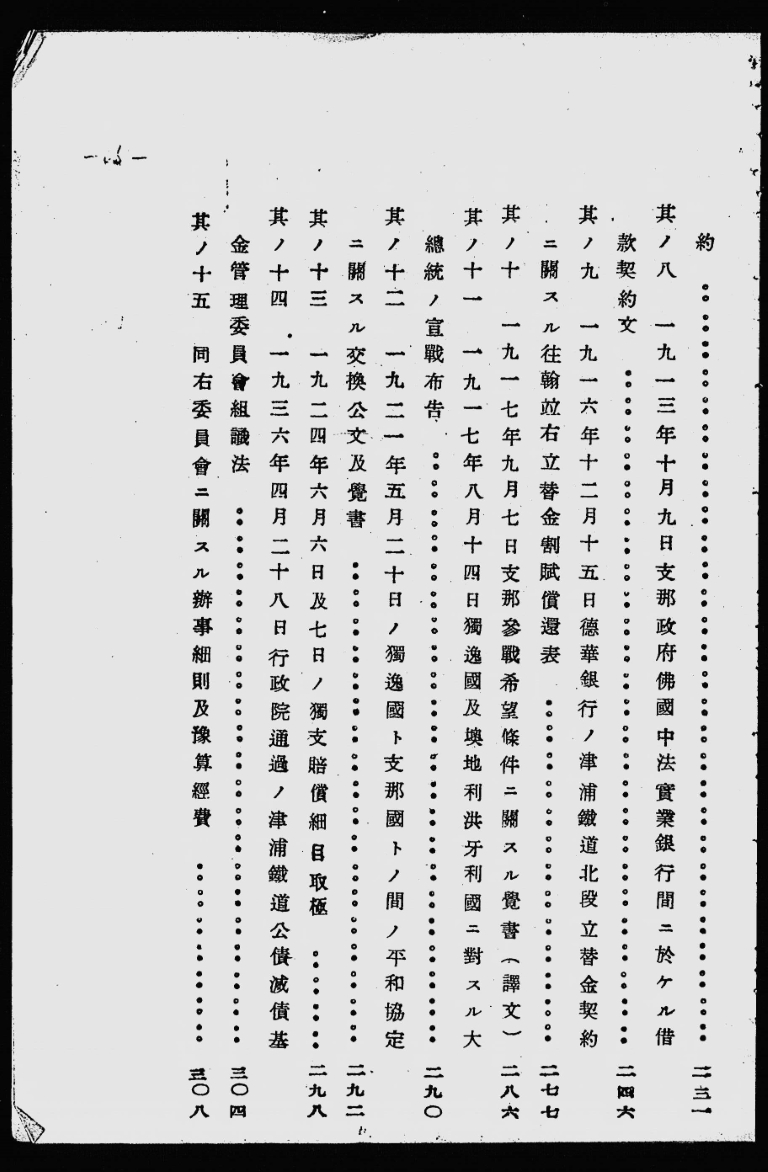 約 二三一
其ノ八 一九一三年十月九日支那政府佛國中法實業銀行間ニ於ケル借
款契約文 二四六
其ノ九 一九一六年十二月十五日德華銀行ノ津浦鐵道北段立替金契約
ニ關スル往翰竝右立替金割賦償還表 二七七
其ノ十 一九一七年九月七日支那參戰希望條件ニ關スル覺書(譯文) 二八六
其ノ十一 一九一七年八月十四日獨逸國及墺地利洪牙利國ニ對スル大
總統ノ宣戰布告 二九〇
其ノ十二 一九二一年五月二十日ノ獨逸國ト支那國トノ間ノ平和協定
ニ關スル交換公文及覺書 二九二
其ノ十三 一九二四年六月六日及七日ノ獨支賠償細目取極 二九八
其ノ十四 一九三六年四月二十八日行政院通過ノ津浦鐵道公債減債基
金管理委員會組議法 三〇四
其ノ十五 同右委員會ニ關スル辦事細則及豫算經費 三〇八